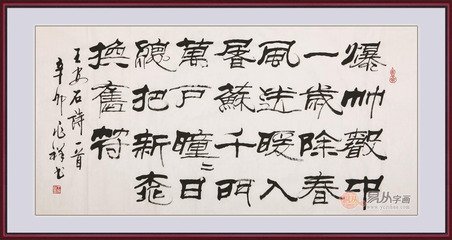 爆竹聲中
一歲除春
風送暖入
屠蘇千門
萬戶曈〻日
總把新桃
換舊符
王安石詩一首
辛卯兆祥書
易从字画